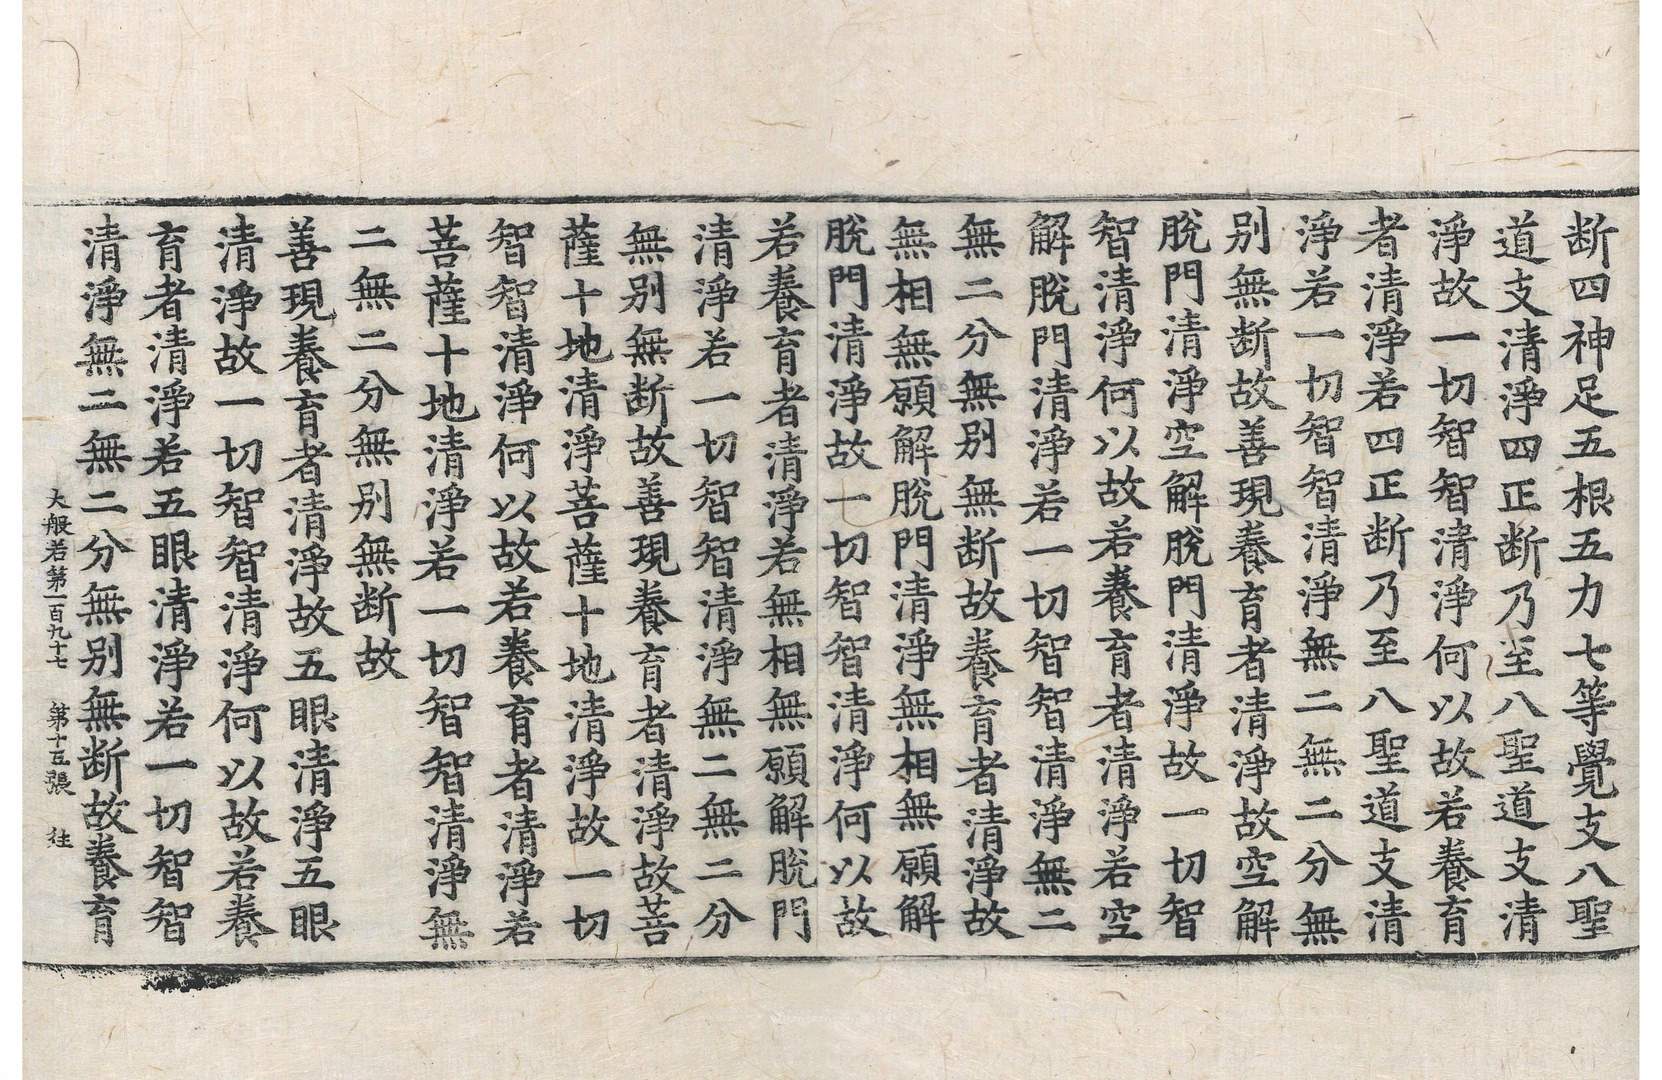 断四神足五根五力七等覺支八聖
道支清淨四正断乃至八聖道支清
淨故一切智智清淨何以故若養育
者清淨若四正断乃至八聖道支清
淨若一切智智清淨無二無二分無
别無断故善現養育者清淨故空解
脫門清淨空解脫門清淨故一切智
智清淨何以故若養育者清淨若空
解脫門清淨若一切智智清淨無二
無二分無别無断故養育者清淨故
無相無願解脫門清淨無相無願解
脫門清淨故一切智智清淨何以故
若養育者清淨若無相無願解脫門
清淨若一切智智清淨無二無二分
無别無断故善現養育者清淨故菩
薩十地清淨菩薩十地清淨故一切
智智清淨何以故若養育者清淨若
菩薩十地清淨若一切智智清淨無
二無二分無别無断故
善現養育者清淨故五眼清淨五眼
清淨故一切智智清淨何以故若養
育者清淨若五眼清淨若一切智智
清淨無二無二分無别無断故養育
大般若第一百九十七 第十五張 往